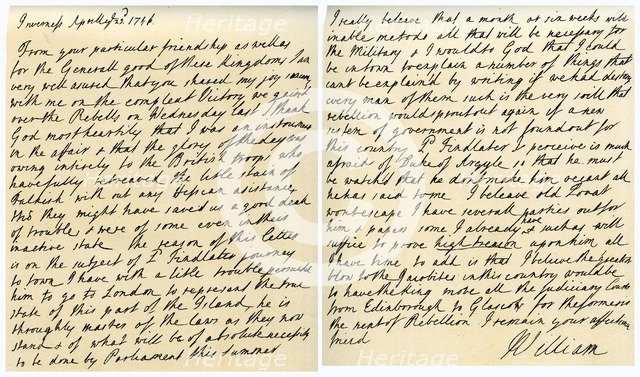 Inverness Aprill ye 23d. 1746.
From your particular friendship as well as
for the Generall good of these Kingdoms I am
very well asured that you shared my joy
with me on the compleat Victory we gained
over the Rebells on Wednesday last I thank
God most heartily that I was an instrument
in the affair & that the glory of the day was
owing intirely to the British troops who
have fully retreaved the litle stain of
Falkirk with out any Hessian asistance
tho' they might have saved us a good deal
of trouble & were of some even in their
inactive state the reason of this letter
is on the subject of Ld Findlater's journey
to town I have with a litle trouble persuaded
him to go to London to represent the true
state of this part of the Island, he is
throughly master of the laws as they now
stand & of what will be of absolute necessity
to be done by Parliament this summer
I really beleave that a month or six weeks will
inable me to do all that will be necessary for
the Military & I would to God that I could
be in town to explain a number of things that
cant be explain'd by writing if we had destroy
every man of them such is the very soil that
rebellion would sprout out again if a new
sistem of government is not found out for
this country Ld Findlater I perceive is much
afraid of Duke of Argyle so that he must
be watch'd that he dont make him recant all
he has said to me I beleave old Lovat
wont escape I have severall parties out for
him & papers some I already have & such as will
suffice to prove high treason upon him all
I have time to add is that I believe the greatest
blow to the Jacobites in this country would be
to have the King move all the Judiciary Courts
from Edinborough to Glascow for the former is
the nest of Rebellion I remain your affectionate
friend
William
heritage
Heritage
Heritage